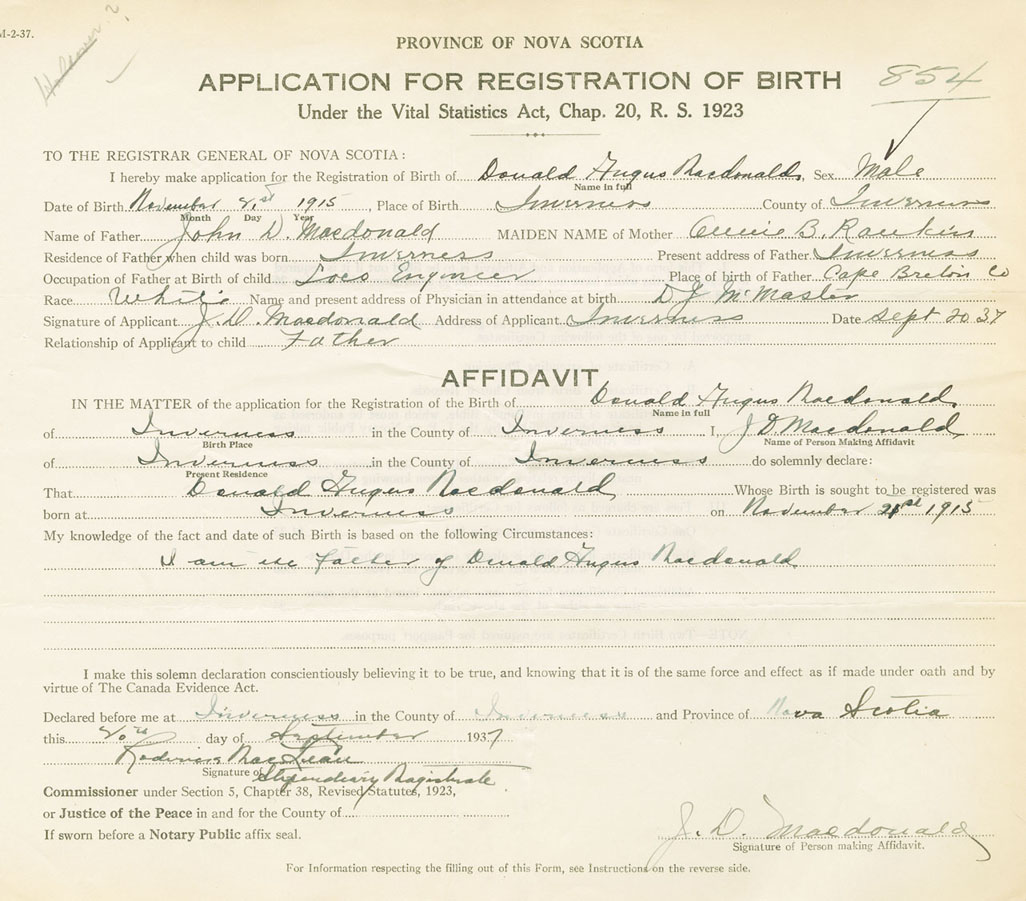 M-2-37.
PROVINCE OF NOVA SCOTIA
APPLICATION FOR REGISTRATION OF BIRTH 854
Under the Vital Statistics Act, Chap. 20, R. S. 1923
TO THE REGISTRAR GENERAL OF NOVA SCOTIA:
I hereby make application for the Registration of Birth of Donald Angus Macdonald Sex Male
Name in full
Date of Birth November 21st 1915, Place of Birth Inverness County of Inverness
Month Day Year
Name of Father John D. Macdonald MAIDEN NAME of Mother Annie B. Rankin
Residence of Father when child was born Inverness Present address of Father Inverness
Occupation of Father at Birth of child Loco Engineer Place of birth of Father Cape Breton Co
Race White Name and present address of Physician in attendance at birth D J McMaster
Signature of Applicant J. D. Macdonald Address of Applicant Inverness Date Sept 20 37
Relationship of Applicant to child Father
AFFIDAVIT
IN THE MATTER of the application for the Registration of the Birth of Donald Angus Macdonald
Name in full
of Inverness in the County of Inverness I, J D. Macdonald
Birth Place Name of Person Making Affidavit
of Inverness in the County of Inverness do solemnly declare:
Present Residence
That Donald Angus Macdonald Whose Birth is sought to be registered was
born at Inverness on November 21st 1915
My knowledge of the fact and date of such Birth is based on the following Circumstances:
I am the father of Donald Angus Macdonald
I make this solemn declaration conscientiously believing it to be true, and knowing that it is of the same force and effect as if made under oath and by
virtue of The Canada Evidence Act.
Declared before me at Inverness in the County of Inverness and Province of Nova Scotia
this 20th day of September 1937
Roderick MacLean
Signature of Stipendiary Magistrate
Commissioner under Section 5, Chapter 38, Revised Statutes, 1923,
or Justice of the Peace in and for the County of
If sworn before a Notary Public affix seal.
J. D. Macdonald
Signature of Person making Affidavit.
For Information respecting the filling out of this Form, see Instructions on the reverse side.